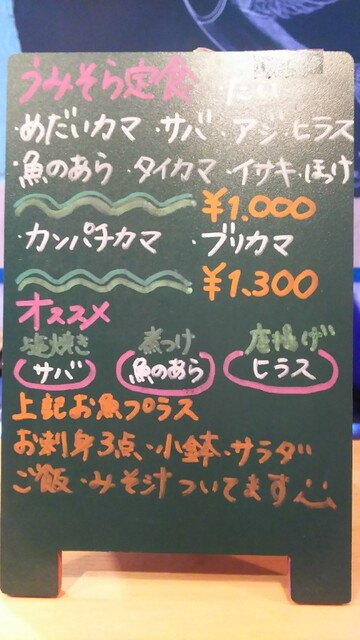 うみそら定食
・めだいカマ ・サバ ・アジ ・ヒラス
・魚のあら ・タイカマ ・イサキ ・ほっけ
¥1.000
・カンパチカマ ・ブリカマ
¥1.300
オススメ
塩焼き 煮つけ 唐揚げ
サバ 魚のあら ヒラス
上記お魚プラス
お刺身3点・小鉢・サラダ
ご飯・みそ汁ついてます